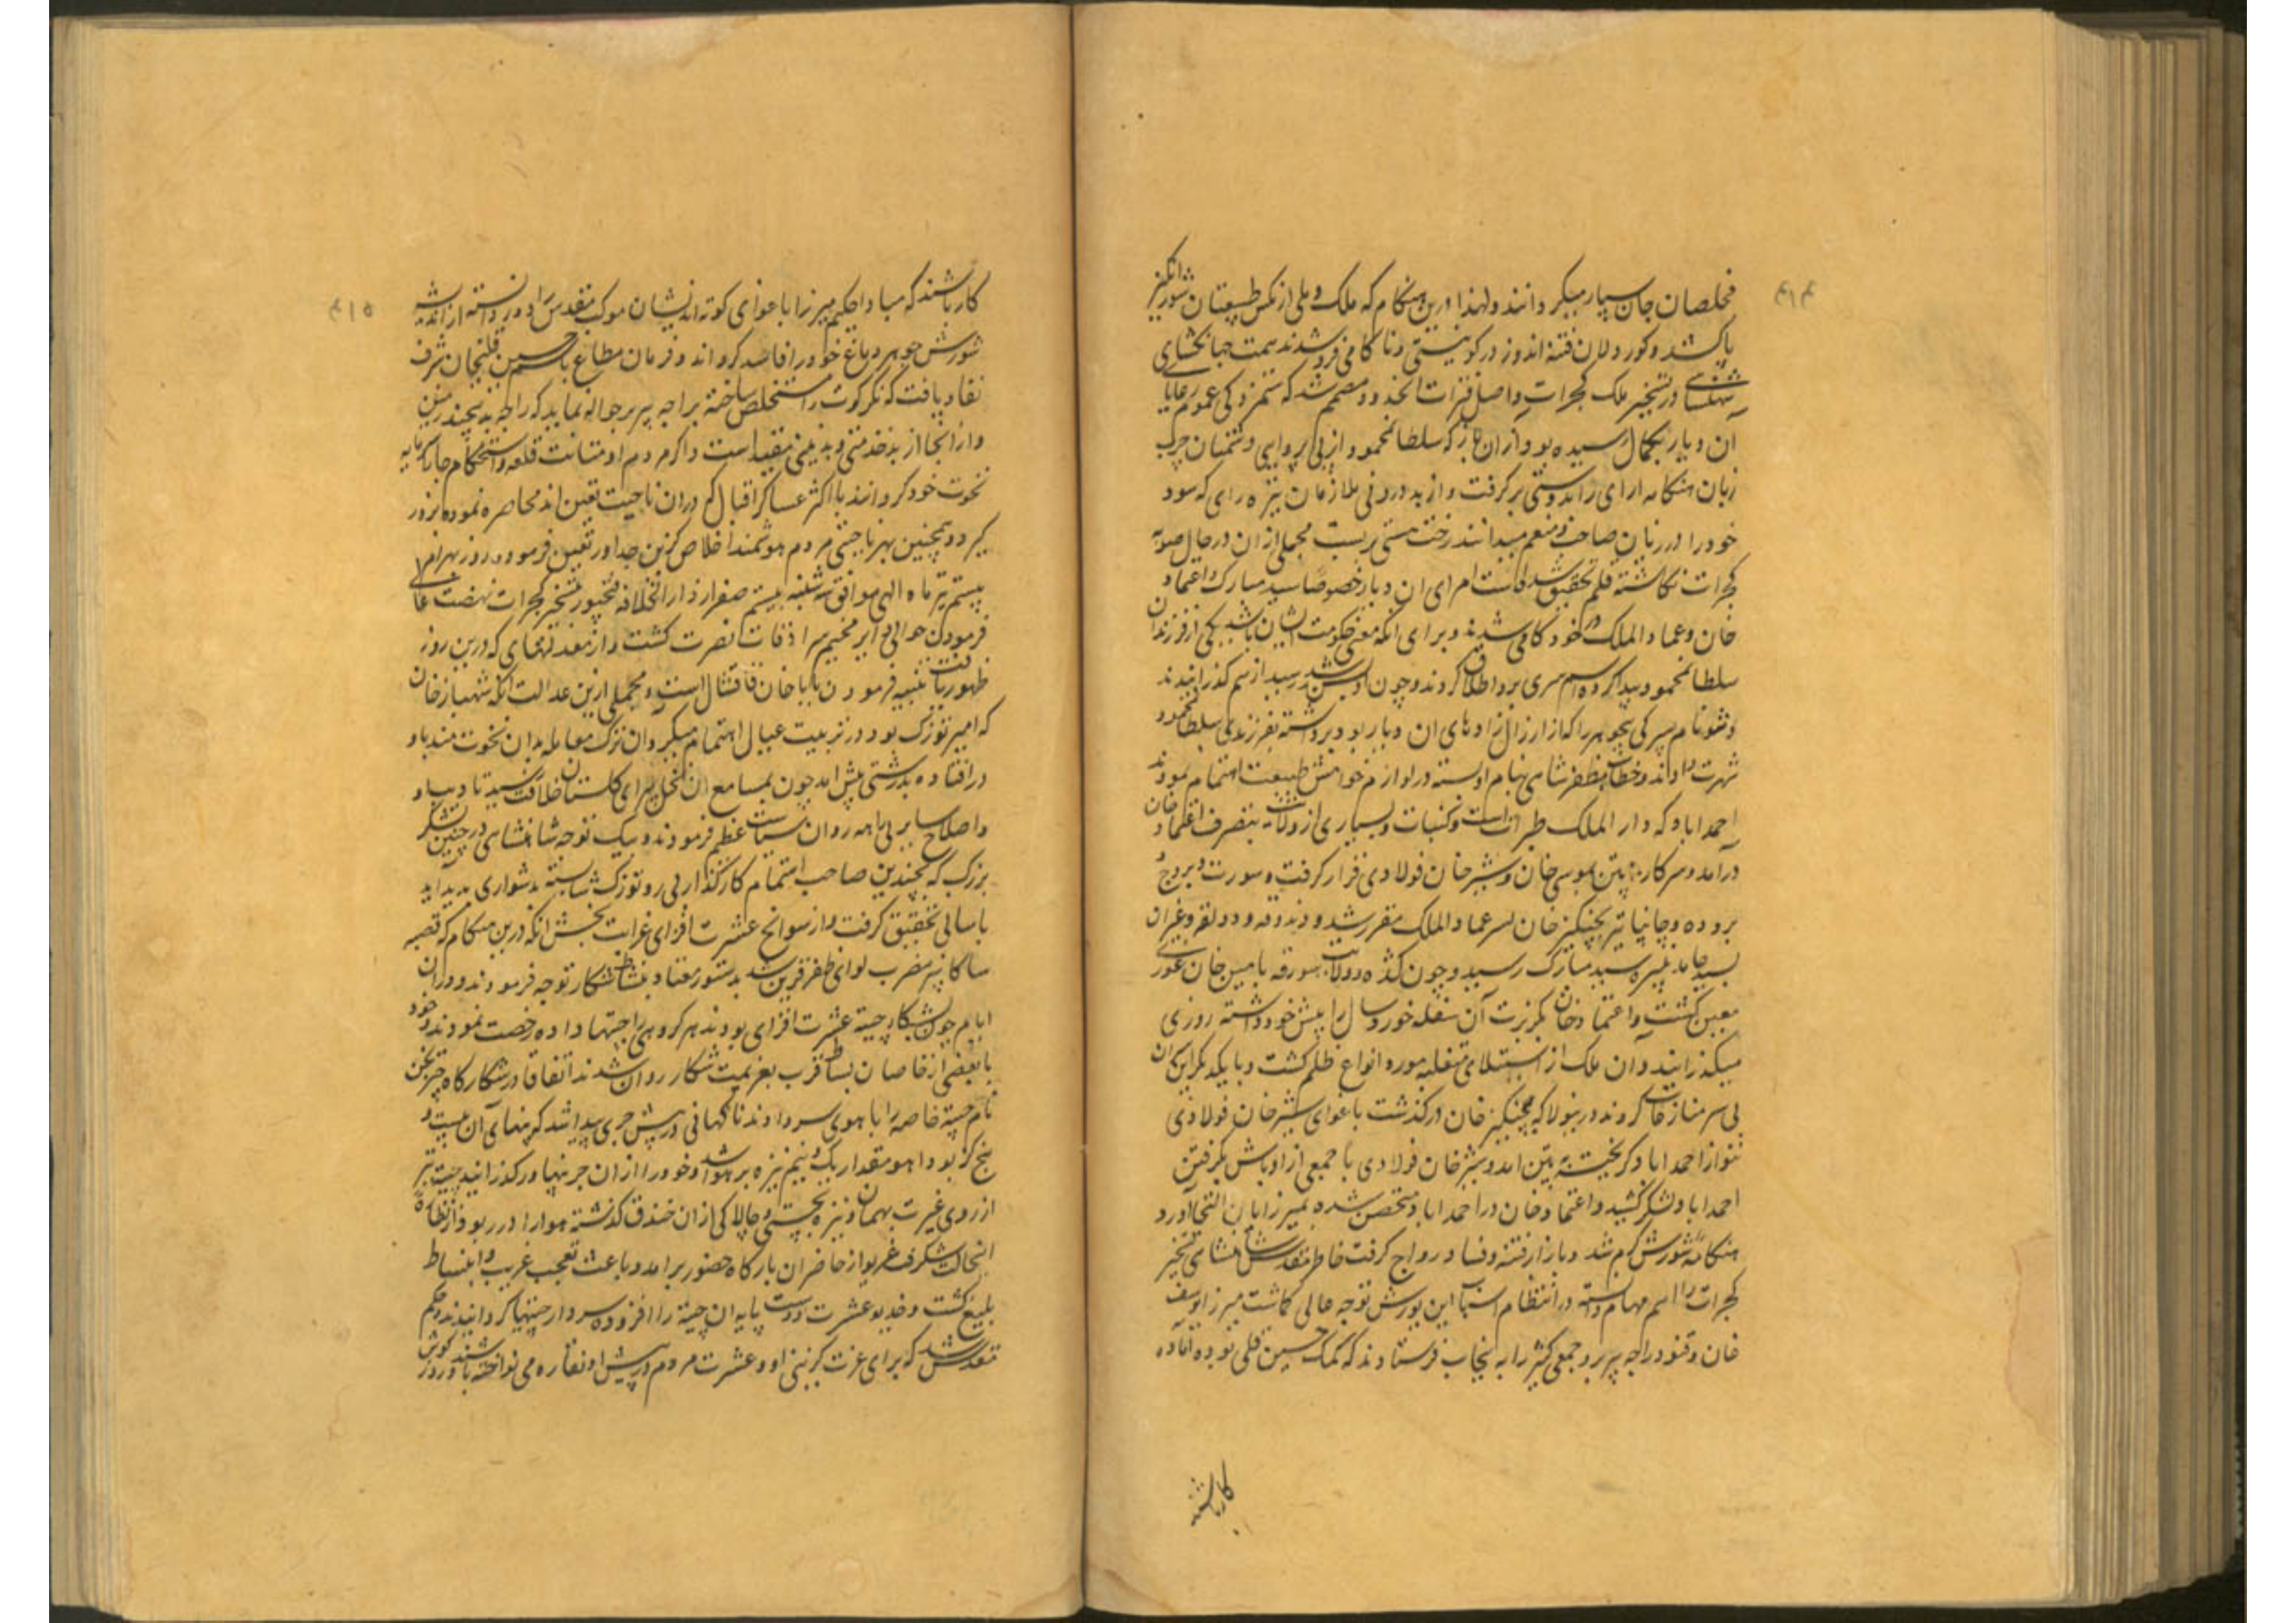 ۴۱۴
مخلصان جان سپار میکردانند ولهذا درین هنکام که ملک دهلی از مکس طبیعتان شورش انکیز
پاک شد و کور دلان فتنه اندوز در کو نیستی و ناکامی فرو شدند همت جهانکشای
شهنشاهی در تسخیر ملک کجرات واصل قرات مصمم شد که ستمزدکی عموم رعایا
آن دیار بکمال رسیده بود از ان باز که سلطانمحمود از بی پروایی دشمنان چرب
زبان هنکامه ارای را بدوستی برکرفت و از بد درونی ملازمان تیره رای که سود
خود را در زیان صاحب و منعم میدانند رخت هستی بربست مجملی از ان در حال صوبه
کجرات نکاشته قلم تحقیق شده است امرای ان دیار خصوصا سید مبارک و اعتماد
خان و عماد الملک خود کامی شدند و برای انکه معنی حکومت ایشان باشد یکی از فرزندان
سلطانمحمود پیدا کرده اسم سری برو اطلاق کردند و چون او برشد رسید از هم کذرانیدند
و نتو نام پسرکی بیجوهر را که از ارزال زادهای ان دیار بود برداشته بفرزندی سلطانمحمود
شهرت دادند و خطاب مظفر شاهی بنام او بسته در لوازم خواهش طبیعت اهتمام نمودند
احمداباد که دار الملک کجرات است و کنبایت و بسیاری از ولایت بتصرف اعتماد خان
درامد و سرکار پتن بموسی خان و شیر خان فولادی قرار کرفت و سورت و بروج
بروده و چانپانیر بچنکیز خان پسر عماد الملک مقرر شد و دندوقه و دولقه و غیران
بسید حامد نبیره سید مبارک رسید و چون کده و ولایت سورته بامین خان غوری
معین کشت و اعتماد خان بکریزت آن سفله خورد سال را پیش خود داشته روزی
میکذرانید و ان ملک از استیلای متغلبه مورد انواع ظلم کشت و با یکدیکر این کران
بی سر منازعات کردند درینولا که چنکیز خان درکذشت باغوای شیر خان فولادی
نتو از احمداباد کریخته به پتن امد و شیر خان فولادی با جمعی از اوباش بکرفتن
احمداباد لشکر کشید و اعتماد خان در احمداباد متحصن شده بمیرزایان التجا اورد
هنکامه شورش کرم شد و بازار فتنه و فساد رواج کرفت خاطر مقدس شاهنشاهی تسخیر
کجرات را اهم مهام دانسته در انتظام اسباب این یورش توجه عالی کماشت میرزا یوسف
خان و فتو و راجه بیربر و جمعی کثیر را به پنجاب فرستادند که کمک حسین قلی بوده اماده
کار باشند
۴۱۵
کار باشند که مبادا حکیم میرزا باغوای کوته اندیشان موکب مقدس را دور دانسته از اندیشه
شورش جوهر دماغ خود را فاسد کرداند و فرمان مطاع باسم حسین قلیخان شرف
نفاد یافت که نکرکوت را مستخلص ساخته براجه بیربر حواله نماید که راجه بدیچند زمین
دار انجا از بدخدمتی و بدمنشی مقید است و اکر مردم او متانت قلعه و استحکام جا را سرمایه
نخوت خود کردانند با اکثر عساکر اقبال که دران ناحیت تعین اند محاصره نموده بزور
کیرد و همچنین بهر ناحیتی مردم هوشمند اخلاص کزین جدا ور تعیین فرمود و در روز بهرام
بیستم تیر ماه الهی موافق سه شنبه بیستم صفر از دار الخلافه فتحپور بتسخیر کجرات نهضت عالی
فرمودند حوالی دایر مخیم سراذقات نصرت کشت و از معدلتهای که درین روز
ظهور یافت تنبیه فرمودن بابا خان قاقشال است و مجملی ازین عدالت انکه شهباز خان
که امیر توزک بود در تربیت عیال اهتمام میکرد ان ترک معامله بدان نخوت مند باو
در افتاده بدرشتی پیش امد چون بمسامع ان نخل پیرای کلستان خلافت رسید تادیب او
و اصلاح سایر بی راهه روان سیاست عظیم فرمودند و بیک توجه شاهنشاهی در چنین لشکر
بزرک که بچندین صاحب اهتمام کارکذار بی رو توزک شایسته بدشواری پدید اید
باسانی تحقیق کرفت و از سوانح عشرت افزای غرابت بخش انکه درین هنکام که قصبه
سانکانیر مضرب لوای ظفر قرین شد بدستور معتاد بنشاط شکار توجه فرمودند و دران
ایام چون بشکار چیته عشرت افزای بودند هر کروهی را چیتها داده رخصت نمودند و خود
با بعضی از خاصان بساط قرب بعزیمت شکار روان شدند اتفاقا در شکارکاه چترنجن
نام چیته خاصه را باهوی سر دادند ناکهانی در پیش جری پیدا شد که پهنای آن بیست و
پنج کز بود اهو مقدار یک و نیم نیزه بر هوا شد و خود را از ان جر پهناور کذرانید چیته تیز
از روی غیرت بهمان و تیره بچستی و چالاکی از ان خندق کذشته اهو را در ربود از نظاره
انحالت شکرف غریو از حاضران بارکاه حضور برامد و باعث تعجب غریب و انبساط
بلیغ کشت و خدیو عشرت دوست پایه ان چیته را افزوده سردار چیتها کردانیدند و حکم
مقدس شد که برای عزت کزینی او و عشرت مردم در پیش او نقاره می نواخته باشند کوش